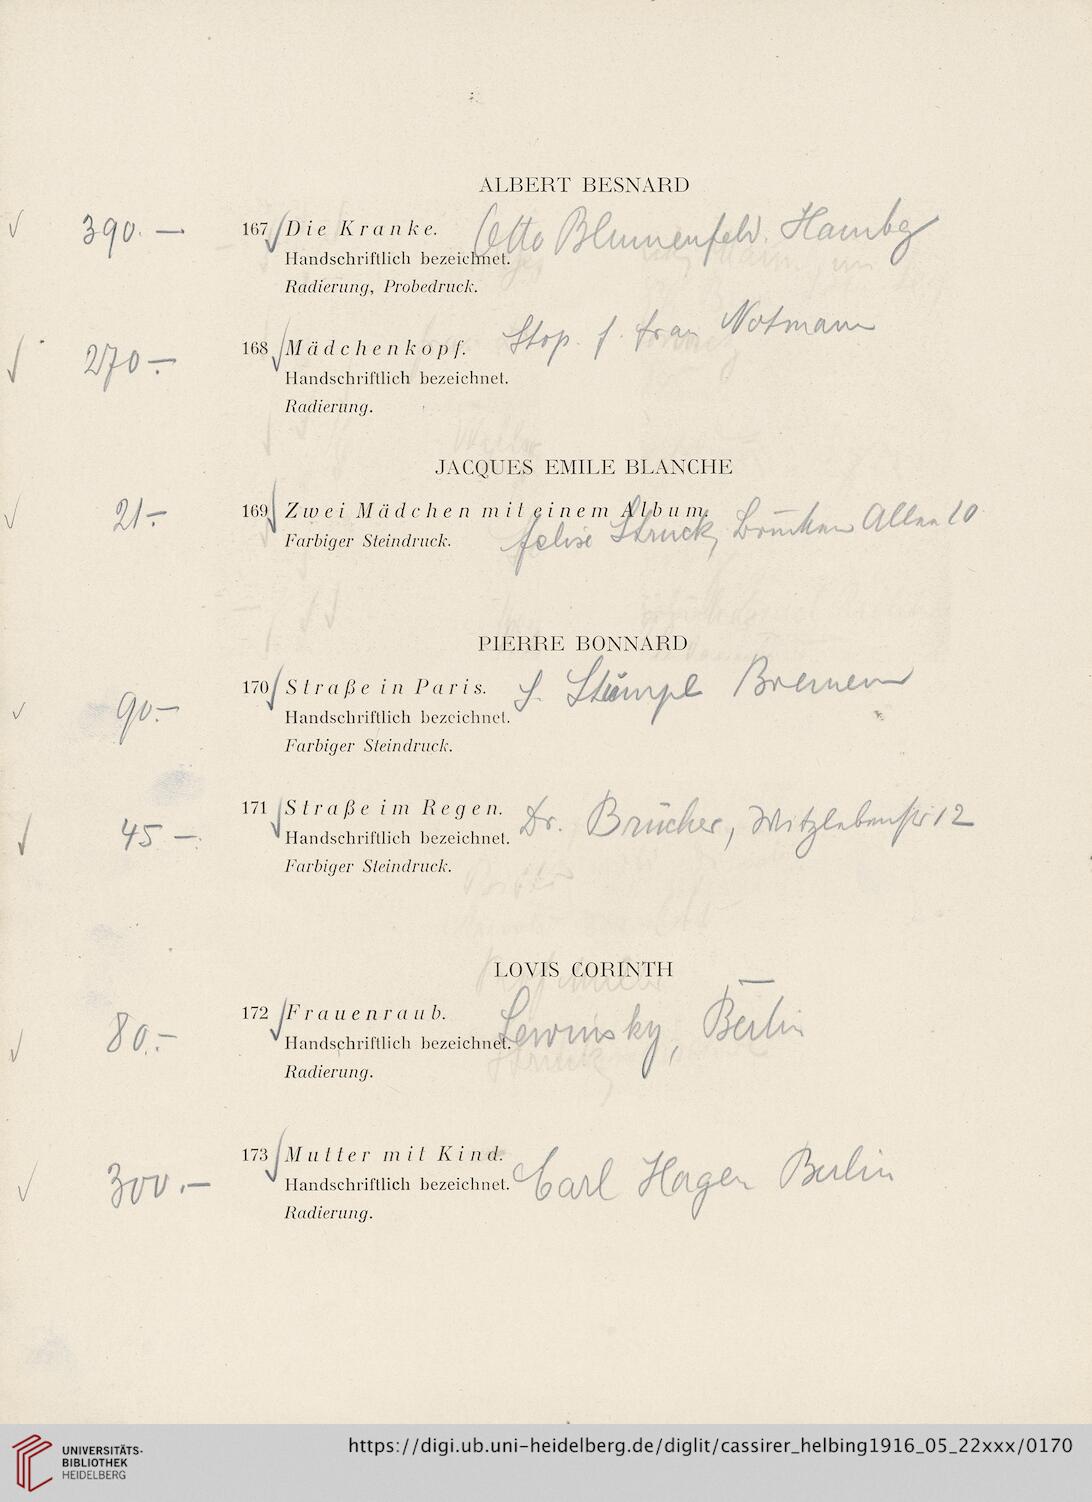 ALBERT BESNARD
390.—
167 Die Kranke.
Otto Blumenfeld. Hambg
Handschriftlich bezeichnet.
Radierung, Probedruck.
270.—
168 Mädchenkopf.
Stop. f. Frau Notmann
Handschriftlich bezeichnet.
Radierung.
JACQUES EMILE BLANCHE
21.—
169 Zwei Mädchen mit einem Album.
Farbiger Steindruck.
Struck, Brücken Allee 10
PIERRE BONNARD
90.—
170 Straße in Paris.
Stümpl Bremen
Handschriftlich bezeichnet.
Farbiger Steindruck.
45 —.
171 Straße im Regen.
Dr. Brücher, Witzlebenstr 12
Handschriftlich bezeichnet.
Farbiger Steindruck.
LOVIS CORINTH
80.—
172 Frauenraub.
Lewinsky, Berlin
Handschriftlich bezeichnet.
Radierung.
300.—
173 Mutter mit Kind.
Carl Hagen Berlin
Handschriftlich bezeichnet.
Radierung.
UNIVERSITÄTS-
BIBLIOTHEK
HEIDELBERG
https://digi.ub.uni-heidelberg.de/diglit/cassirer_helbing1916_05_22xxx/0170